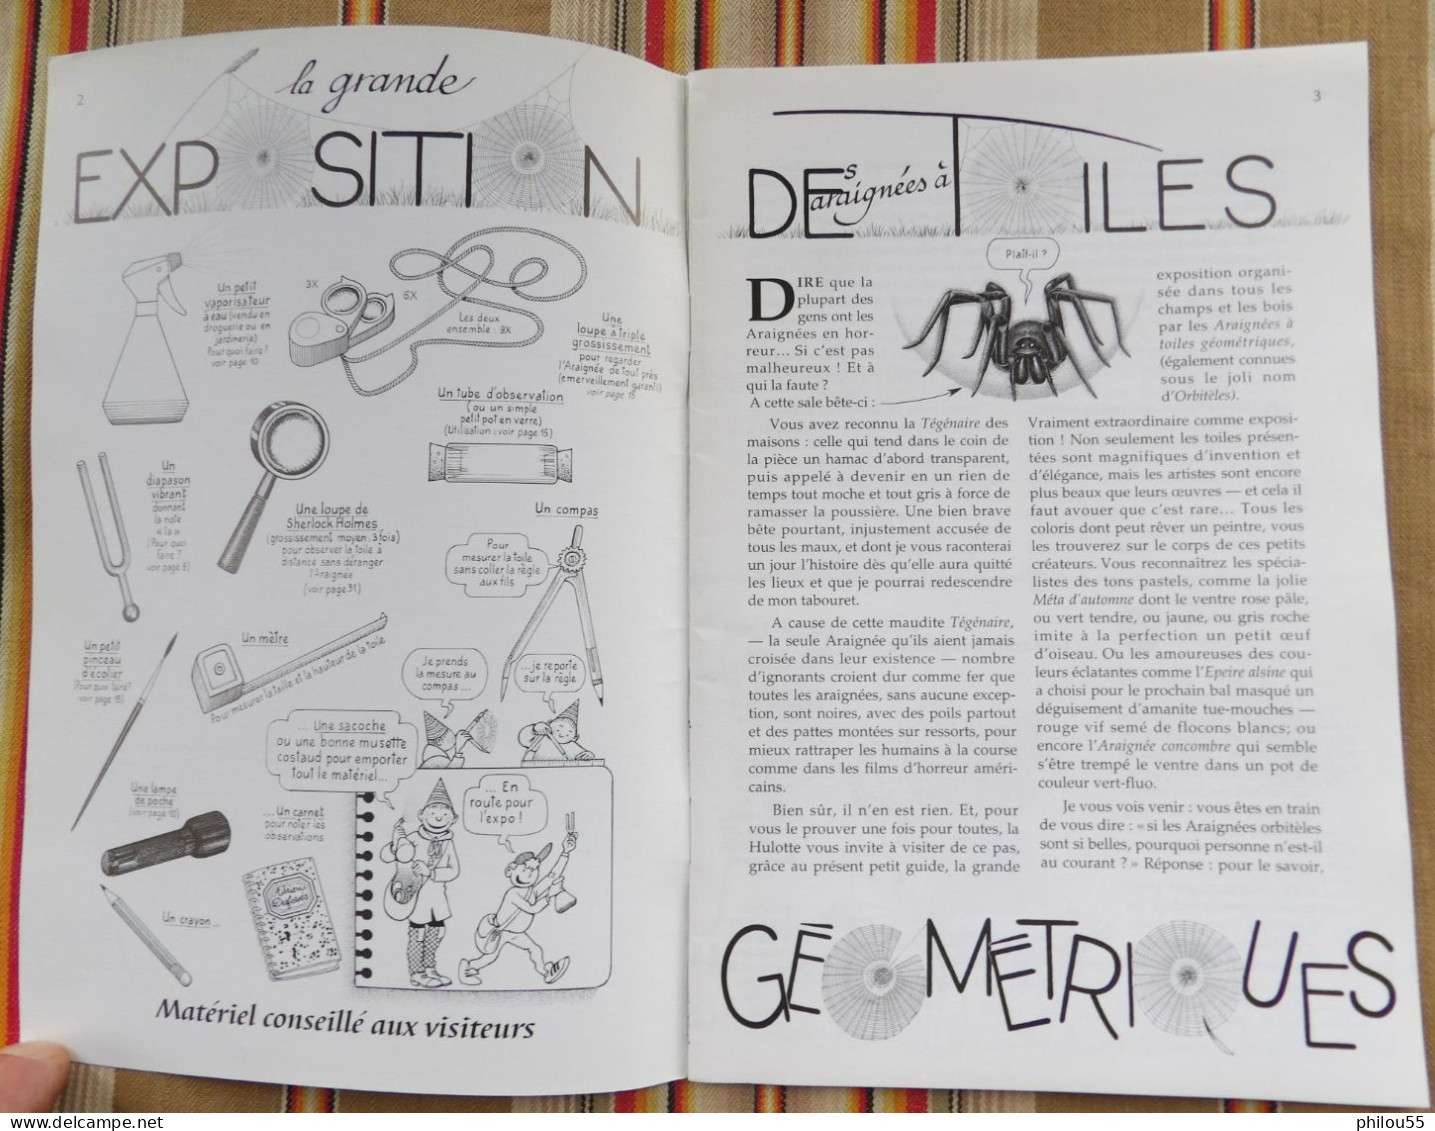 2
la grande
EXPOSITION
Un petit
vaporisateur
à eau (vendu en
droguerie ou en
jardinerie)
Pourquoi faire ?
voir page 10
3X
6X
Les deux
ensemble : 9X
Une
loupe à triple
grossissement
pour regarder
l'Araignée de tout près
(émerveillement garanti)
voir page 15
Un tube d'observation
(ou un simple
petit pot en verre)
(Utilisation : voir page 15)
Un
diapason
vibrant
donnant
la note
« la »
(Pour quoi
faire ?
voir page 9)
Une loupe de
Sherlock Holmes
(grossissement moyen : 3 fois)
pour observer la toile à
distance sans déranger
l'Araignée
(voir page 31)
Un compas
Pour
mesurer la toile
sans coller la règle
aux fils
Un petit
pinceau
d'écolier
(Pour quoi faire?
voir page 15)
Un mètre
Pour mesurer la taille et la hauteur de la toile
Je prends
la mesure au
compas ...
...je reporte
sur la règle
... Une sacoche
ou une bonne musette
costaud pour emporter
tout le matériel...
Une lampe
de poche
(voir page 10)
...Un carnet
pour noter les
observations
... En
route pour
l'expo !
Un crayon...
Matériel conseillé aux visiteurs
3
DES araignées à TOILES
Plaît-il ?
DIRE que la
plupart des
gens ont les
Araignées en hor-
reur... Si c'est pas
malheureux ! Et à
qui la faute ?
A cette sale bête-ci :
Vous avez reconnu la Tégénaire des
maisons : celle qui tend dans le coin de
la pièce un hamac d'abord transparent,
puis appelé à devenir en un rien de
temps tout moche et tout gris à force de
ramasser la poussière. Une bien brave
bête pourtant, injustement accusée de
tous les maux, et dont je vous raconterai
un jour l'histoire dès qu'elle aura quitté
les lieux et que je pourrai redescendre
de mon tabouret.
A cause de cette maudite Tégénaire,
— la seule Araignée qu'ils aient jamais
croisée dans leur existence — nombre
d'ignorants croient dur comme fer que
toutes les araignées, sans aucune excep-
tion, sont noires, avec des poils partout
et des pattes montées sur ressorts, pour
mieux rattraper les humains à la course
comme dans les films d'horreur améri-
cains.
Bien sûr, il n'en est rien. Et, pour
vous le prouver une fois pour toutes, la
Hulotte vous invite à visiter de ce pas,
grâce au présent petit guide, la grande
exposition organi-
sée dans tous les
champs et les bois
par les Araignées à
toiles géométriques,
(également connues
sous le joli nom
d'Orbitèles).
Vraiment extraordinaire comme exposi-
tion ! Non seulement les toiles présen-
tées sont magnifiques d'invention et
d'élégance, mais les artistes sont encore
plus beaux que leurs œuvres — et cela il
faut avouer que c'est rare... Tous les
coloris dont peut rêver un peintre, vous
les trouverez sur le corps de ces petits
créateurs. Vous reconnaîtrez les spécia-
listes des tons pastels, comme la jolie
Méta d'automne dont le ventre rose pâle,
ou vert tendre, ou jaune, ou gris roche
imite à la perfection un petit œuf
d'oiseau. Ou les amoureuses des cou-
leurs éclatantes comme l'Epeire alsine qui
a choisi pour le prochain bal masqué un
déguisement d'amanite tue-mouches —
rouge vif semé de flocons blancs; ou
encore l'Araignée concombre qui semble
s'être trempé le ventre dans un pot de
couleur vert-fluo.
Je vous vois venir : vous êtes en train
de vous dire : « si les Araignées orbitèles
sont si belles, pourquoi personne n'est-il
au courant ? » Réponse : pour le savoir,
GÉOMÉTRIQUES
www.delcampe.net
philou55